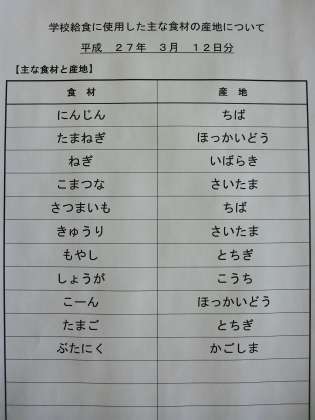 学校給食に使用した主な食材の産地について
平成 27年 3月 12日分
【主な食材と産地】
食 材 産 地
にんじん ちば
たまねぎ ほっかいどう
ねぎ いばらき
こまつな さいたま
さつまいも ちば
きゅうり さいたま
もやし とちぎ
しょうが こうち
こーん ほっかいどう
たまご とちぎ
ぶたにく かごしま